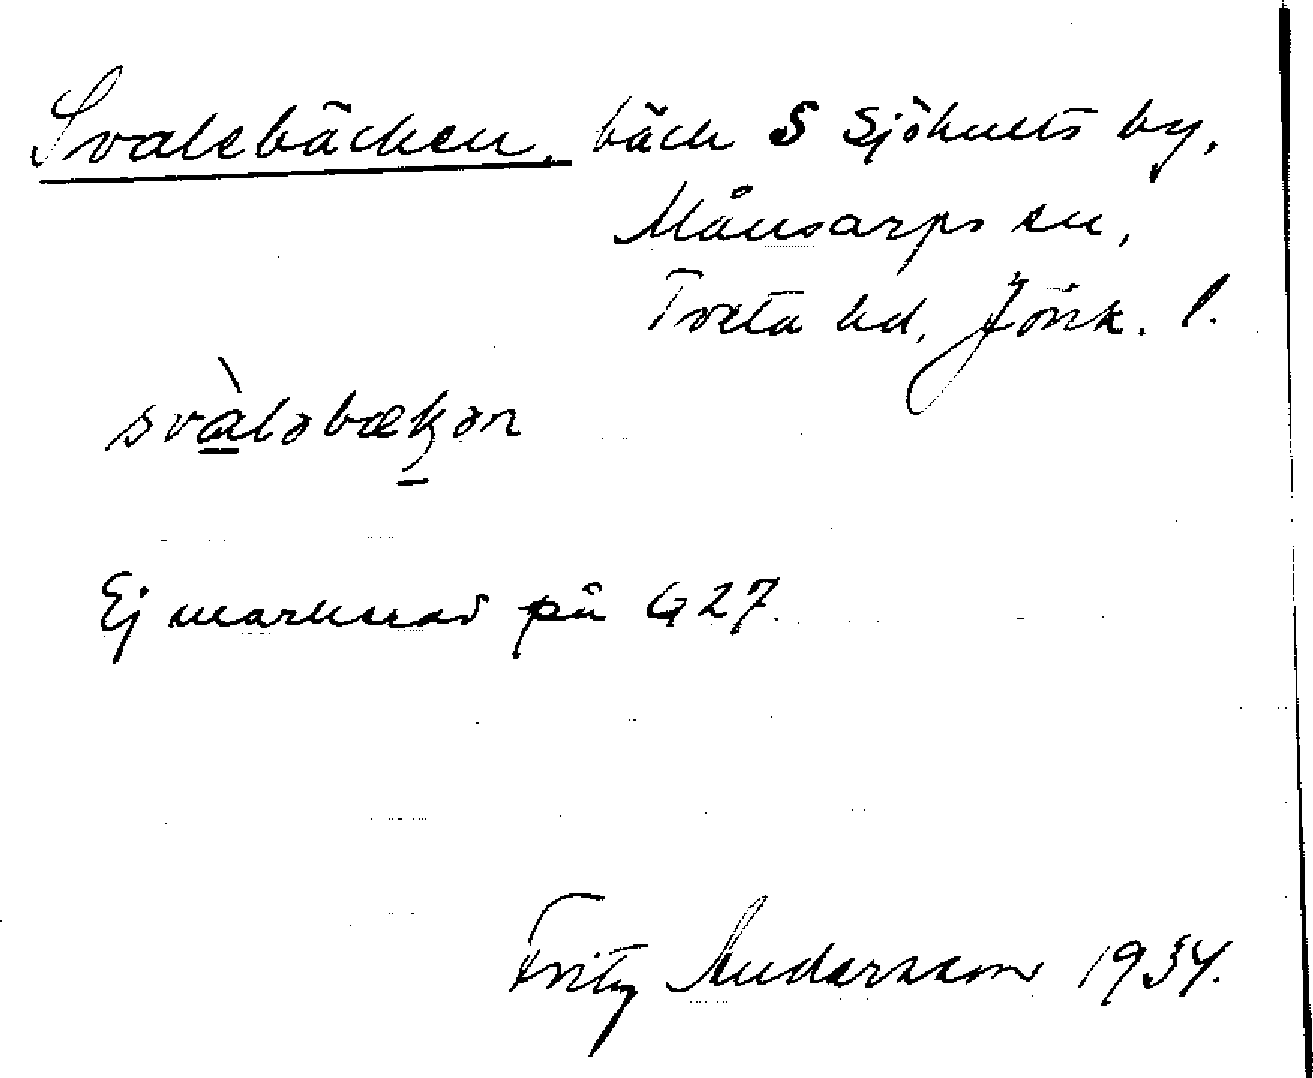 Svalebäcken, bäck S Sjöhults by,
Månsarps sn,
Tveta hd, Jönk. l.
svàləbækən
Ej markerad på G 27.
Fritz Andersson 1934.